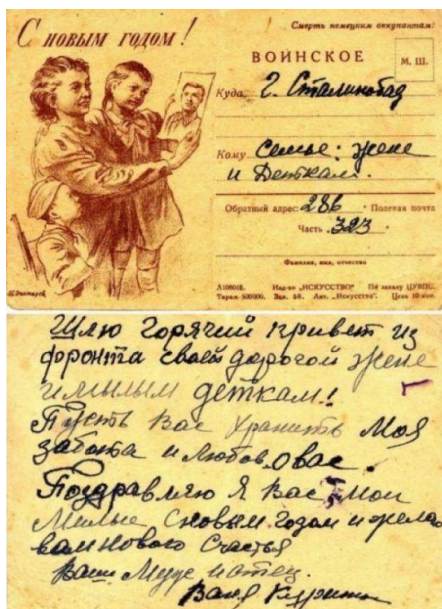 С новым годом!
Смерть немецким оккупантам!
ВОИНСКОЕ
М. Ш.
Куда г. Сталинобад
Кому семье: жене
и Деткам.
Обратный адрес: 286 Полевая почта
Часть 323
Фамилия, имя, отчество
Изд-во „ИСКУССТВО" По заказу ЦУВПС.
Тираж 500000. Зак. Лит. „Искусство". Цена 10 коп.
Шлю горячий привет из
фронта своей дорогой жене
и милым деткам!
Пусть Вас хранить Моя
забота и любов о вас.
Поздравляю я Вас Мои
Милые с новым годом и желаю
вам нового счастья
Ваш Муж и отец.
Ваня